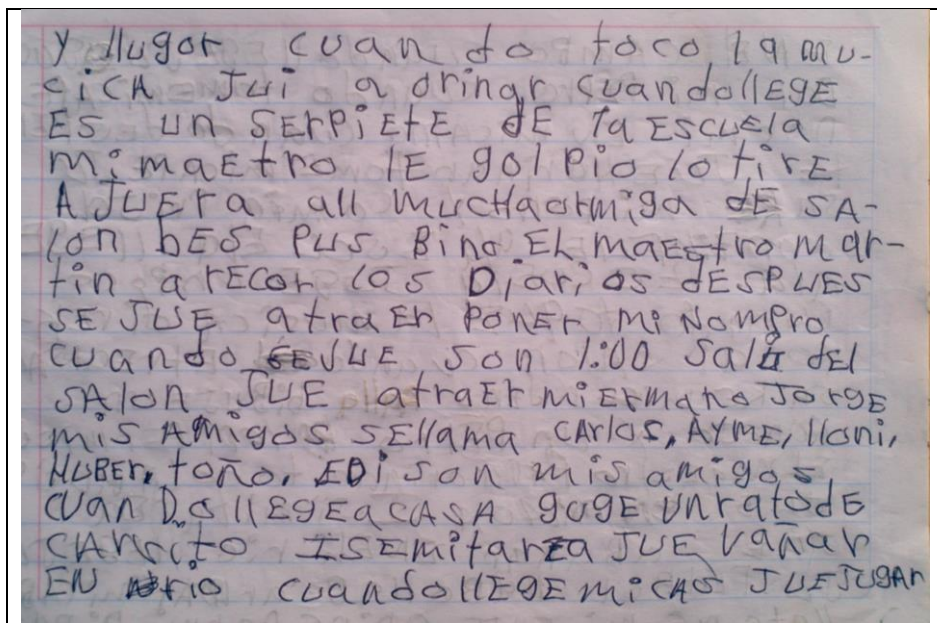 Y llugar cuan do toco la mu-
cicA Jui a oringr cuandollEgE
Es un SErPiEtE dE la EscuEla
mi maEtro lE golPio lo tirE
AJUEra all mucHaormiga dE SA-
lon bES PuS Bino El maEstro mar-
tin a rEcor los Diarios dESPUES
SE JUE atraEr PonEr mi Nompro
cuando SEJUE son 1:00 Sali dEl
SAlon JUE atraEr miErmano JorgE
mis AmigoS SEllama CArlos, AYME, lloni,
HUBEr, toño, EDi son mis amigos
cuanDollEgEacASA gugE UnratodE
CArrito ISEmitarEa JUE vañar
EN rio cuandollEgE mi CAS JUEJUgAr